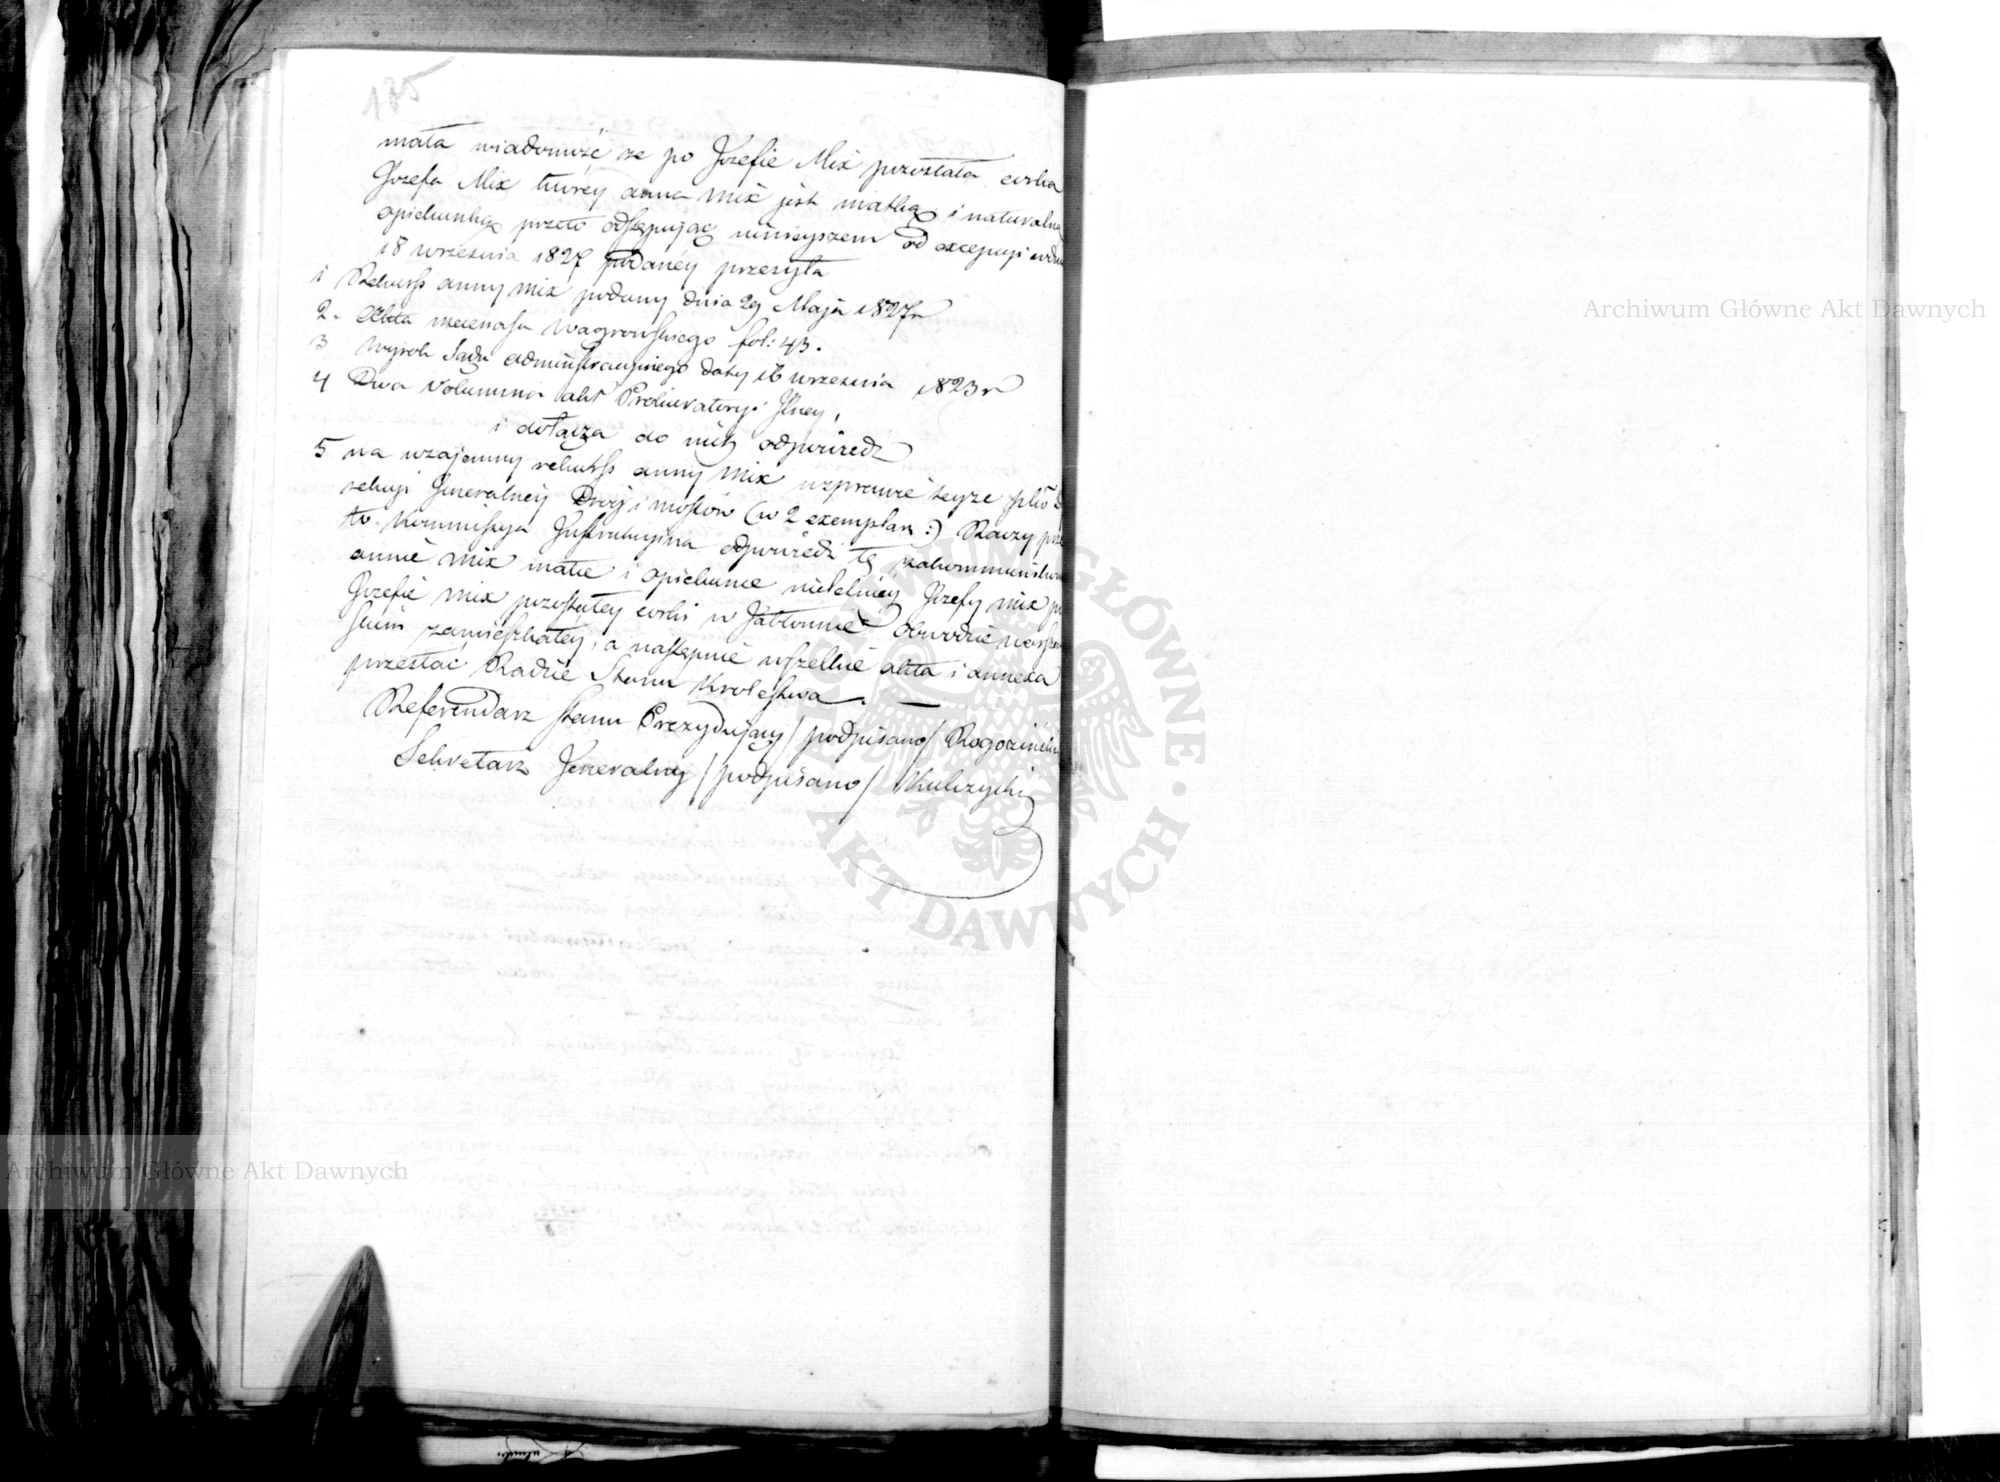 135
mała wiadomość ze po Jozefie Mix pozostała corka
Jozefa Mix ktorey anna Mix jest matką i naturalną
opiekunką przeto odstępując ninieyszem od excepcyi
18 września 1827 podaney przesyła
1 Rekurss anny Mix podany dnia 29 Maja 1827 r
2. Akta mecenasa Wagrowskiego fol: 43.
3 Wyrok Sądu administracyinego daty 16 września 1823 r
4 Dwa Volumina akt Prokuratoryi Jlney,
i dołącza do nich odpowiedz
5 na wzajemny rekurss anny Mix w sprawie teyze
rekcyi Jeneralney Drog i mostów (w 2 exemplar:) Raczy
Kommissya Jnstrukcyina odpowiedz tę zakommuniko
annie Mix matce i opiekunce nieletniey Jozefy Mix po
Jozefie Mix pozostałey corki w Jabłonnie obwodzie warszaw
skim zamieszkałey, a następnie wszelkie akta i annexa
przesłac Radzie Stanu Krolestwa. —
Referendarz stanu Prezyduiący / podpisano / Rogozinski
Sekretarz Jeneralny / podpisano / Kulczycki
Archiwum Główne Akt Dawnych
Archiwum Główne Akt Dawnych
ARCHIWUM GŁÓWNE AKT DAWNYCH